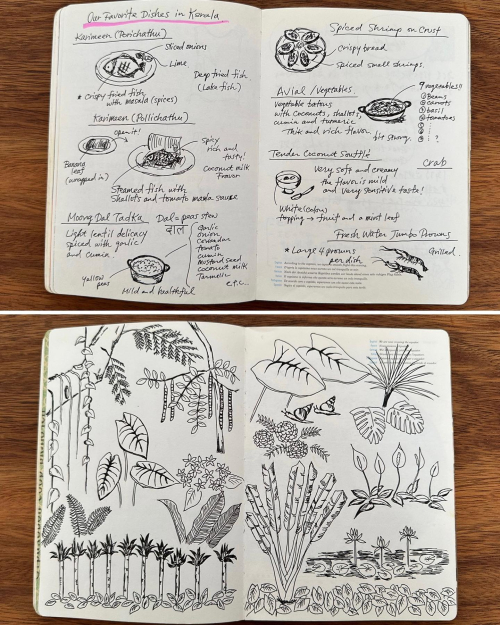 Our Favorite Dishes in Kerala
Karimeen (Porichathu)
Sliced onions
Lime
Deep fried fish
(Lake fish)
* Crispy fried fish
with masala (spices)
Karimeen (Pollichathu)
open it!
Banana
leaf
(wrapped in)
Spicy
rich and
tasty!
Coconut milk
flavor
Steamed fish with
Shallots and tomato masala sauce
Moong Dal Tadka
Dal = peas stew
दाल
Light lentil delicacy
spiced with garlic
and cumin.
garlic
onion
coriander
tomato
cumin
Mustard seed
Coconut milk
Turmeric
e.t.c..
yellow
peas
Mild and healthful
Spiced Shrimp on Crust
Crispy bread
Spiced small shrimps.
Avial / Vegetables
Vegetable batons
with Coconuts, shallots,
cumin and turmeric
Thik and rich flavor
bit strong.
7 vegetables!!
① Beans
② carrots
③ basil
④ tomatoes
⑤ :
⑥ :
⑦ : ?
Tender Coconut Soufflé
Crab
Very soft and creamy
the flavor is mild
and very sensitive taste!
White (color)
topping → fruit and a mint leaf
Fresh Water Jumbo Prawns
* Large 4 prawns
per dish
Grilled.